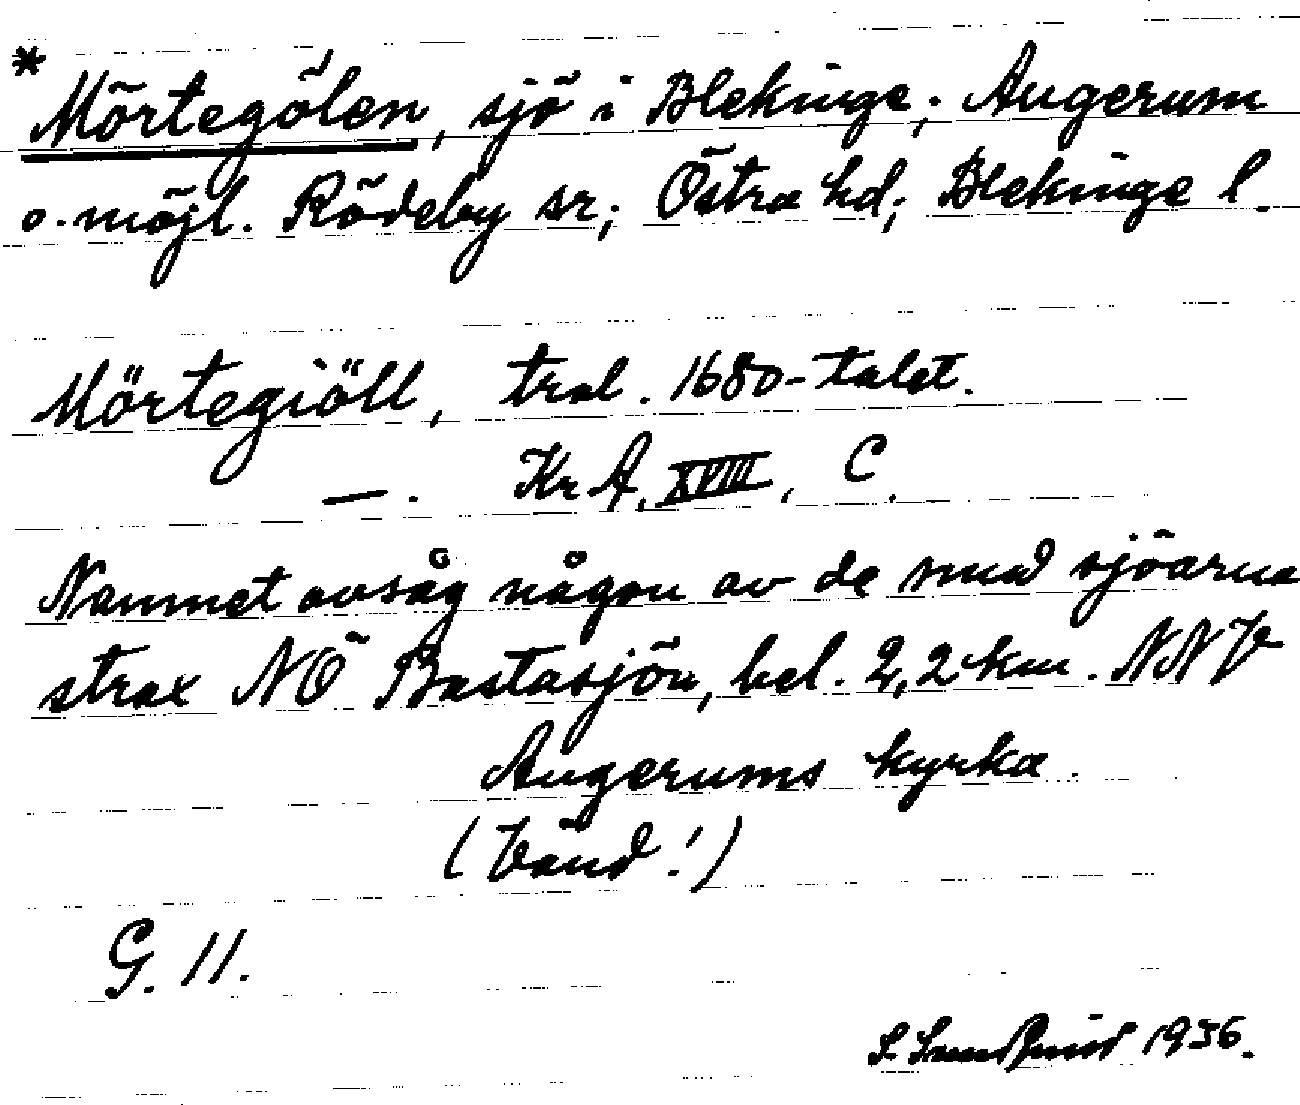 * Mörtegölen, sjö i Blekinge; Augerum
o. möjl. Rödeby sr; Östra hd; Blekinge l.
Mörtegiöll, trol. 1680-talet.
—. KrA, XVIII, C.
Namnet avsåg någon av de små sjöarna
strax NÖ Bastasjön, bel. 2,2 km. NNV
Augerums kyrka.
(Vänd!)
G. 11.
1936.